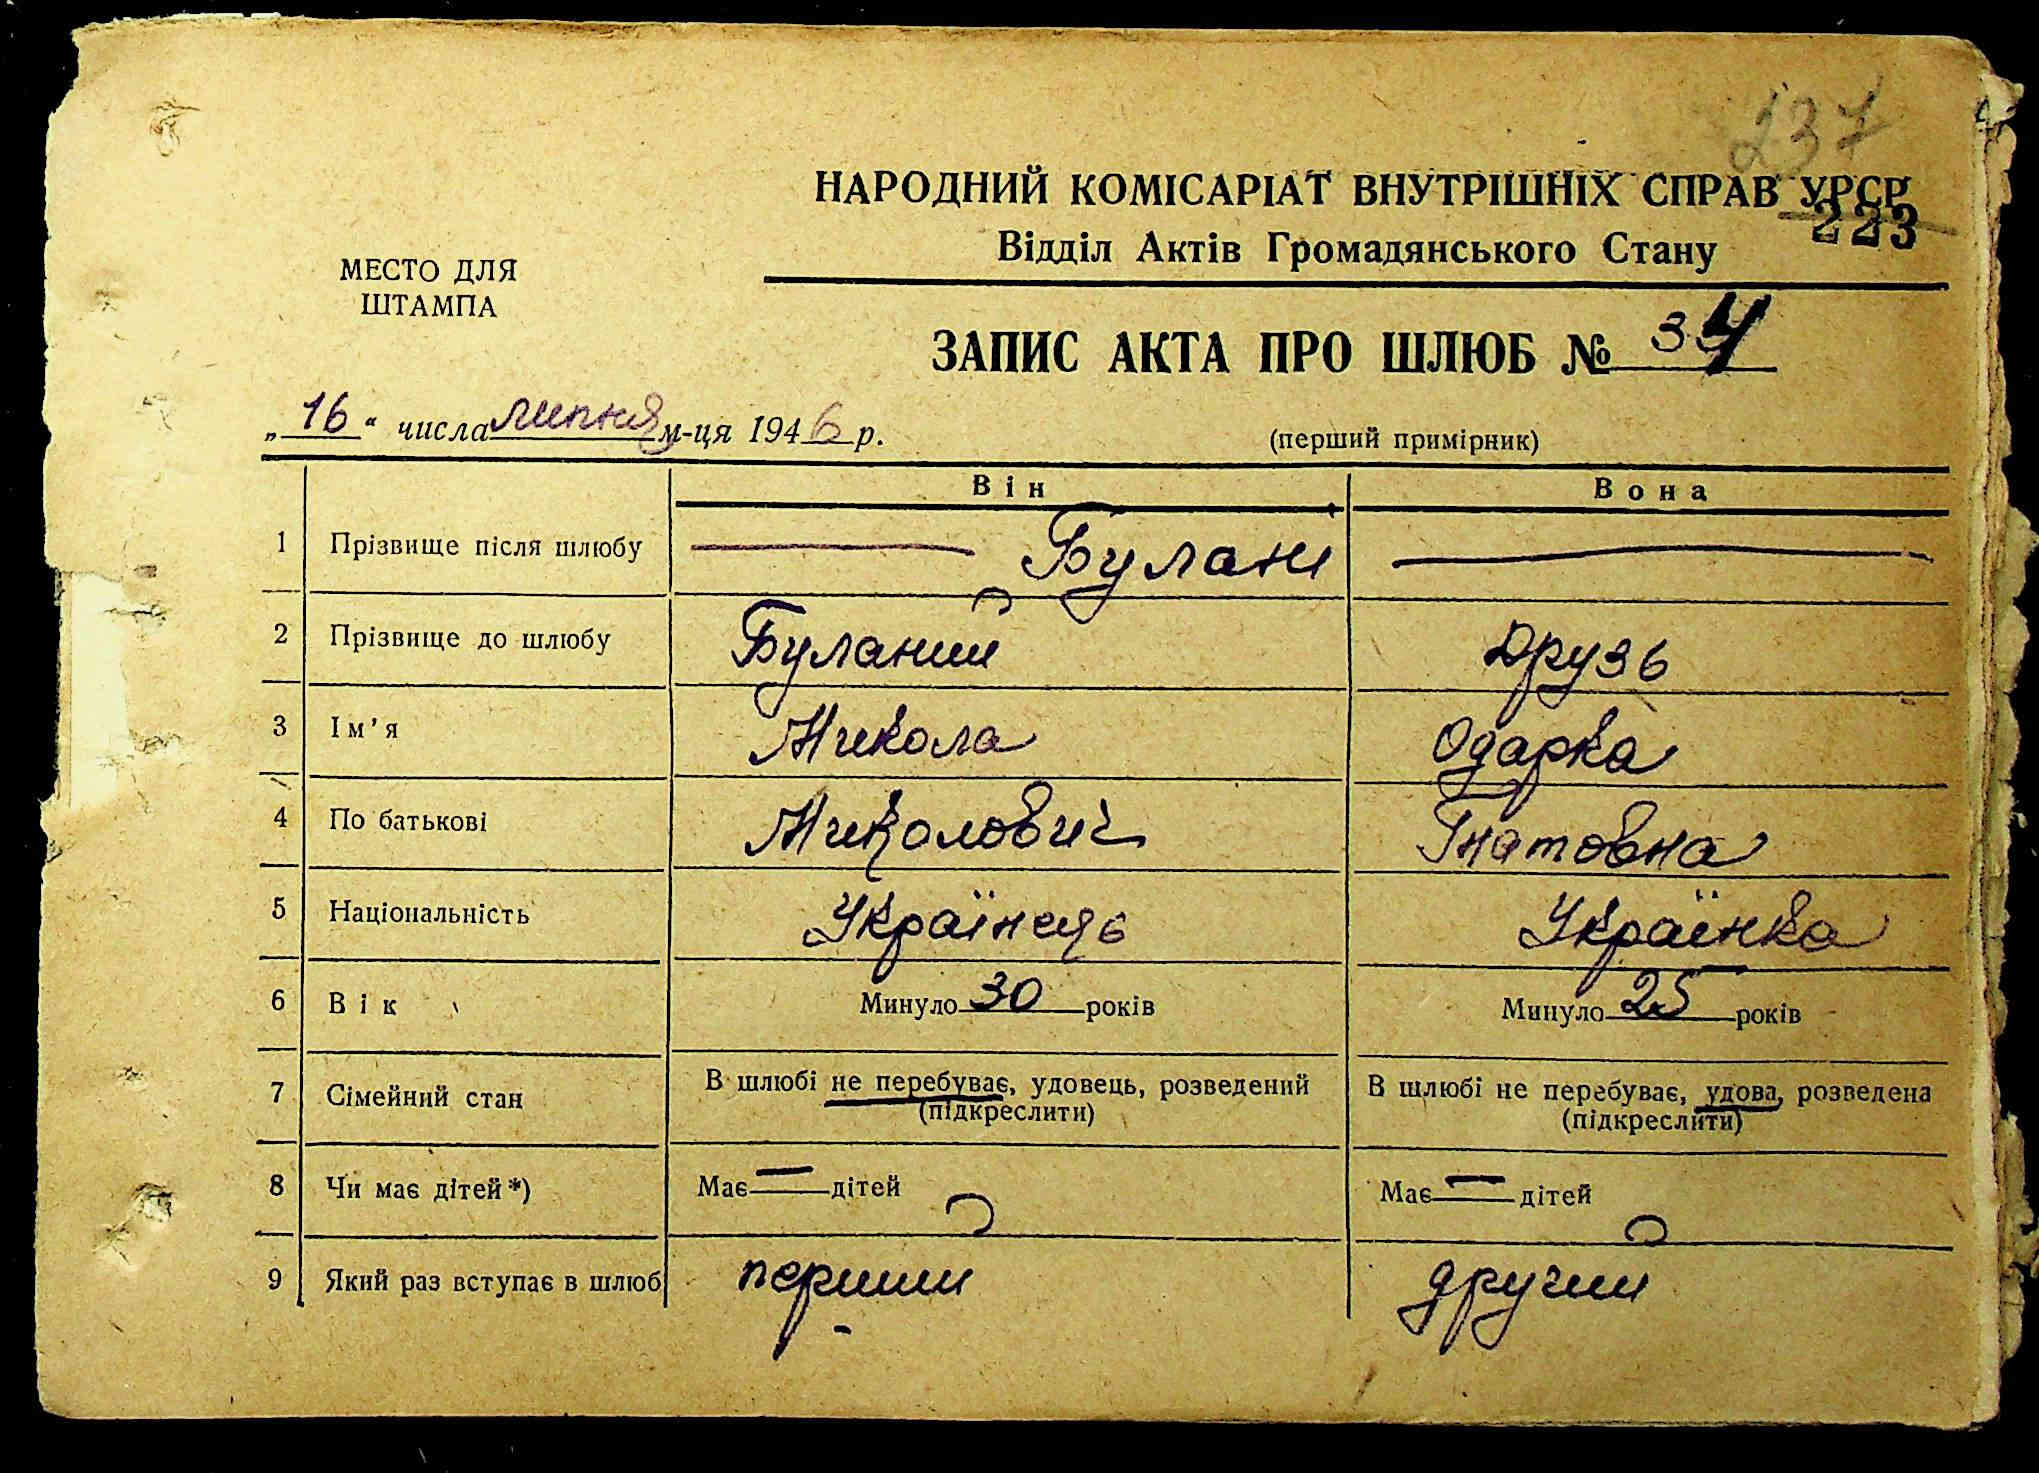 237
НАРОДНИЙ КОМІСАРІАТ ВНУТРІШНІХ СПРАВ УРСР
223
Відділ Актів Громадянського Стану
МЕСТО ДЛЯ
ШТАМПА
ЗАПИС АКТА ПРО ШЛЮБ № 34
„16“ числа липня м-ця 1946 р.
(перший примірник)
Він Вона
1 Прізвище після шлюбу — Булані —
2 Прізвище до шлюбу Буланий Друзь
3 Ім'я Микола Одарка
4 По батькові Миколович Гнатовна
5 Національність Українець Українка
6 Вік Минуло 30 років Минуло 25 років
7 Сімейний стан В шлюбі не перебуває, удовець, розведений В шлюбі не перебуває, удова, розведена
(підкреслити) (підкреслити)
8 Чи має дітей*) Має — дітей Має — дітей
9 Який раз вступає в шлюб перший другий